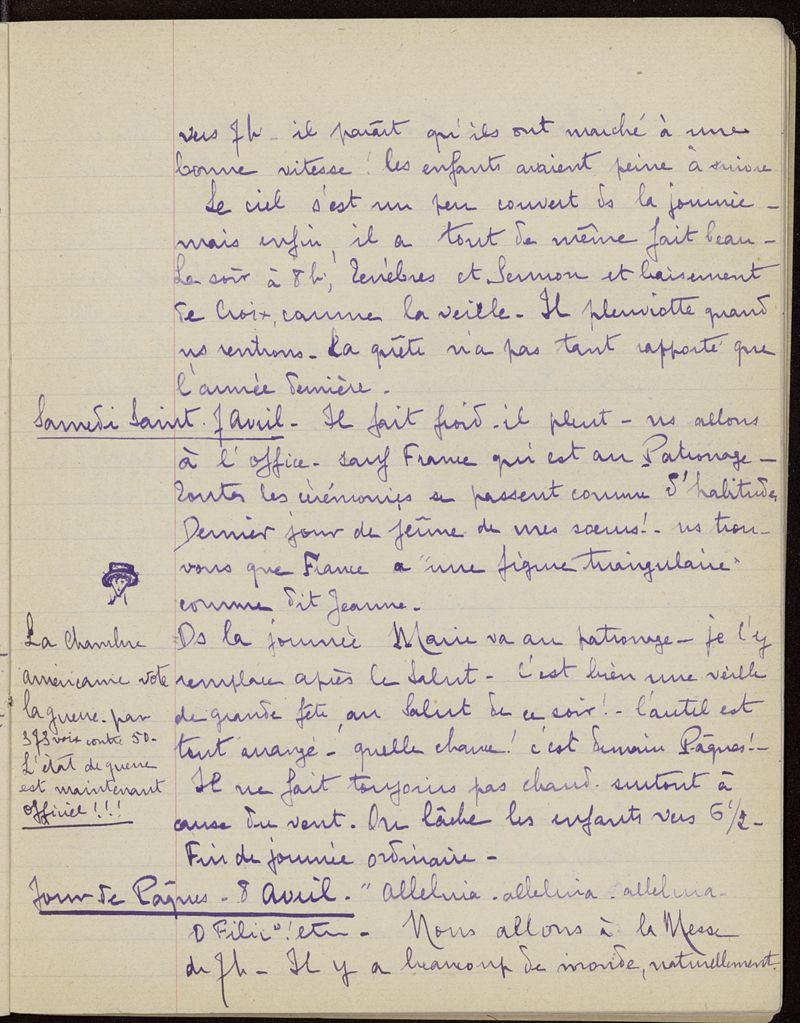 vers 7h - il paraît qu'ils ont marché à une
bonne vitesse ! les enfants avaient peine à suivre
Le ciel s'est un peu couvert ds la journée -
mais enfin, il a tout de même fait beau -
Le soir à 8h, Ténèbres et Sermon et baisement
de Croix, comme la veille - Il pleuviotte quand
ns rentrons - La quête n'a pas tant rapporté que
l'année dernière -
Samedi Saint. 7 Avril - Il fait froid - il pleut - ns allons
à l'office - sauf France qui est au Patronage -
Toutes les cérémonies se passent comme d'habitude
Dernier jour de jeûne de mes sœurs ! - ns trou-
vons que France a "une figure triangulaire"
comme dit Jeanne -
Ds la journée Marie va au patronage - je l'y
remplace après le Salut - C'est bien une veille
de grande fête, au Salut de ce soir ! - l'autel est
tout arrangé - quelle chance ! c'est demain Pâques ! -
Il ne fait toujours pas chaud. surtout à
cause du vent. On lâche les enfants vers 6h 1/2 -
Fin de journée ordinaire -
La Chambre
américaine vote
la guerre. par
373 voix contre 50 -
L'état de guerre
est maintenant
officiel !!!
Jour de Pâques - 8 Avril - "Alleluia - alleluia - alleluia -
O Filii" ! etc - Nous allons à la Messe
de 7h - Il y a beaucoup de monde, naturellement.